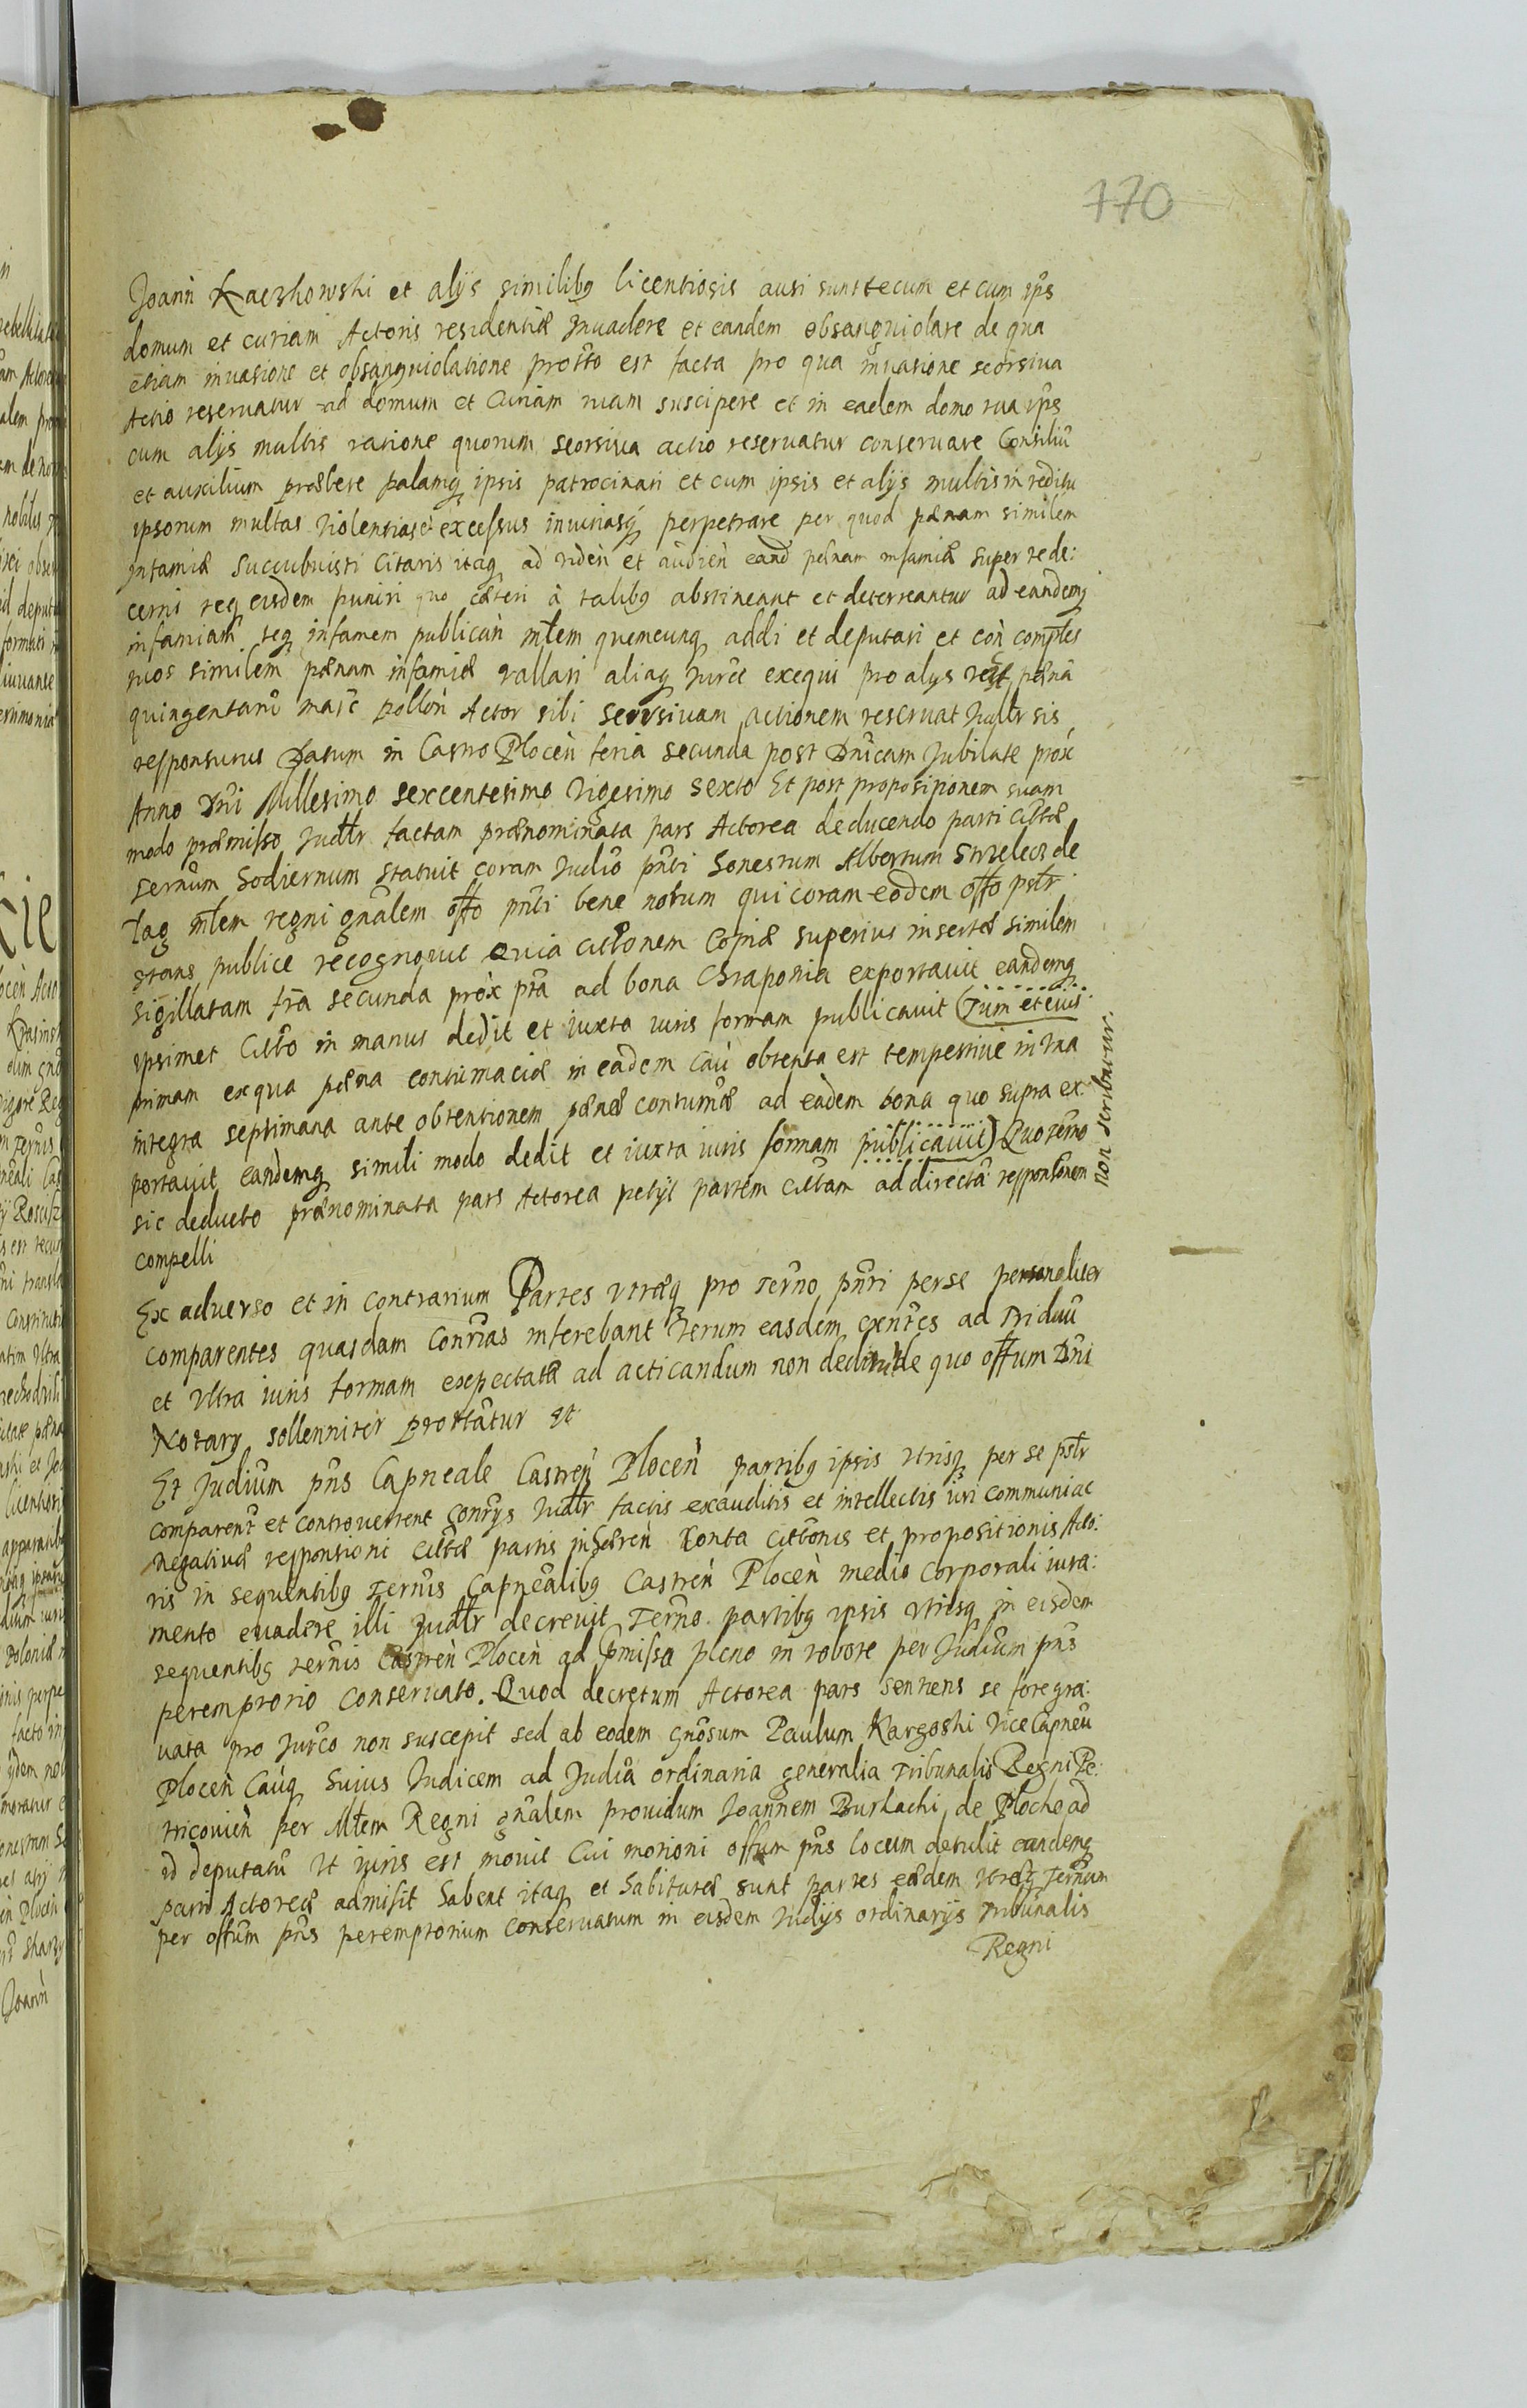 770
Joann̄ Kaczkowski et alijs similibq licentiosis ausi sunt tecum et cum ip̄s
domum et curiam Actoris residentiæ Inuadere et eandem obsanguiolare de qua
etiam inuasione et obsanguiolatione prottō est facta pro qua inuasione seorsiua
Actio reseruatur ad domum et Curiam tuam suscipere et in eadem domo tua ip̄s
cum alijs multis ratione quorum seorsiua actio reseruatur conseruare Consiliū
et auxilium præbere palamq ipsis patrocinari et cum ipsis et alijs multis in reditu
ipsorum multas violentias excessus iniuriasq perpetrare per quod pænam similem
Infamiæ Succubuisti Citaris itaq ad viden̄ et audien̄ eand pænam infamiæ super te de:
cerni teq eisdem puniri quo cæteri à talibq abstineant et deterreantur ad eandemq
infamiam teq infamem publican̄ mt̄em quemcunq addi et deputari et con̄ comp̄les
tuos similem pænam infamiæ vallari aliaq Iurc̄e exequi pro alijs vero pænā
quingentarū marc̄ pollon̄ Actor sibi seorsiuam actionem reseruat Iudtr̄ sis
responsurus Datum in Castro Plocen̄ feria secunda post Dn̄icam Iubilate prox̄
Anno Dn̄i Millesimo sexcentesimo vigesimo sexto Et post propositionem suam
modo præmisso Iudtr̄ factam prænominata pars Actorea deducendo parti citt̄æ
ternūm hodiernum statuit coram Iudiō pn̄ti honestum Albertum Strzelecz de
Łag mt̄em regni gn̄alem offō pn̄ti bene notum qui coram eodem offō pstr̄
stans publice recognouit Quia cittōnem Copiæ superius insertæ similem
sigillatam fr̄ia secunda prox̄ pt̄a ad bona Chraponia exportauit eandemq
ipsimet Cittō in manus dedit et iuxta iuris formam publicauit (Tum et eius
primam ex qua pæna contumaciæ in eadem caū obtenta est tempestiue in vna
integra septimana ante obtentionem pænæ contumæ ad eadem bona quo supra ex:
portauit eandemq simili modo dedit et iuxta iuris formam publicauit) Quo tern̄o
non scribatur.
sic deducto prænominata pars Actorea petijt partem cittam ad directā responsionem
compelli
Ex aduerso et in contrarium Partes vtræq pro tern̄o pn̄ti per se personaliter
comparentes quasdam Contr̄ias inferebant verum easdem exn̄tes ad triduū
et vltra iuris formam expectatæ ad acticandum non dederunt de quo offum Dn̄i
Notarij sollenniter prottatur et
Et Iudium pn̄s Capneale Castren̄ Plocen̄ partibq ipsis vtrisq per se pstr̄
comparen̄t et controuertent contr̄ijs Iudtr̄ factis exauditis et intellectis iuri communi ac
negatiuæ responsioni cittæ partis inhæren̄ Conta cittōnis et propositionis Acto:
ris in sequentibq terns̄ Capnealibq Castren̄ Plocen̄ medio corporali iura:
mento euadere illi Iudtr̄ decreuit Tern̄o partibq ipsis vtrisq in eisdem
sequentibq terns̄ Castren̄ Plocen̄ ad p̄missa pleno in robore per Iudium pn̄s
peremptorio conseruato. Quod decretum Actorea pars sentiens se fore gra:
uata pro Iurc̄o non suscepit sed ab eodem gn̄osum Paulum Kargoski Vice Capneū
Plocen̄ Caūq huius Iudicem ad Iudiā ordinaria generalia Tribunalis Regni Pe:
tricouien̄ per Mt̄em Regni gn̄alem prouidum Joannem Burlachi de Plocko ad
id deputatū vt iuris est mouit Cui motioni offum pn̄s locum detulit eandemq
parti Actoreæ admisit habent itaq et habituræ sunt partes eædem vtræq ternum
per offum pn̄s peremptorium conseruatum in eisdem Iudijs ordinarijs Tribunalis
Regni